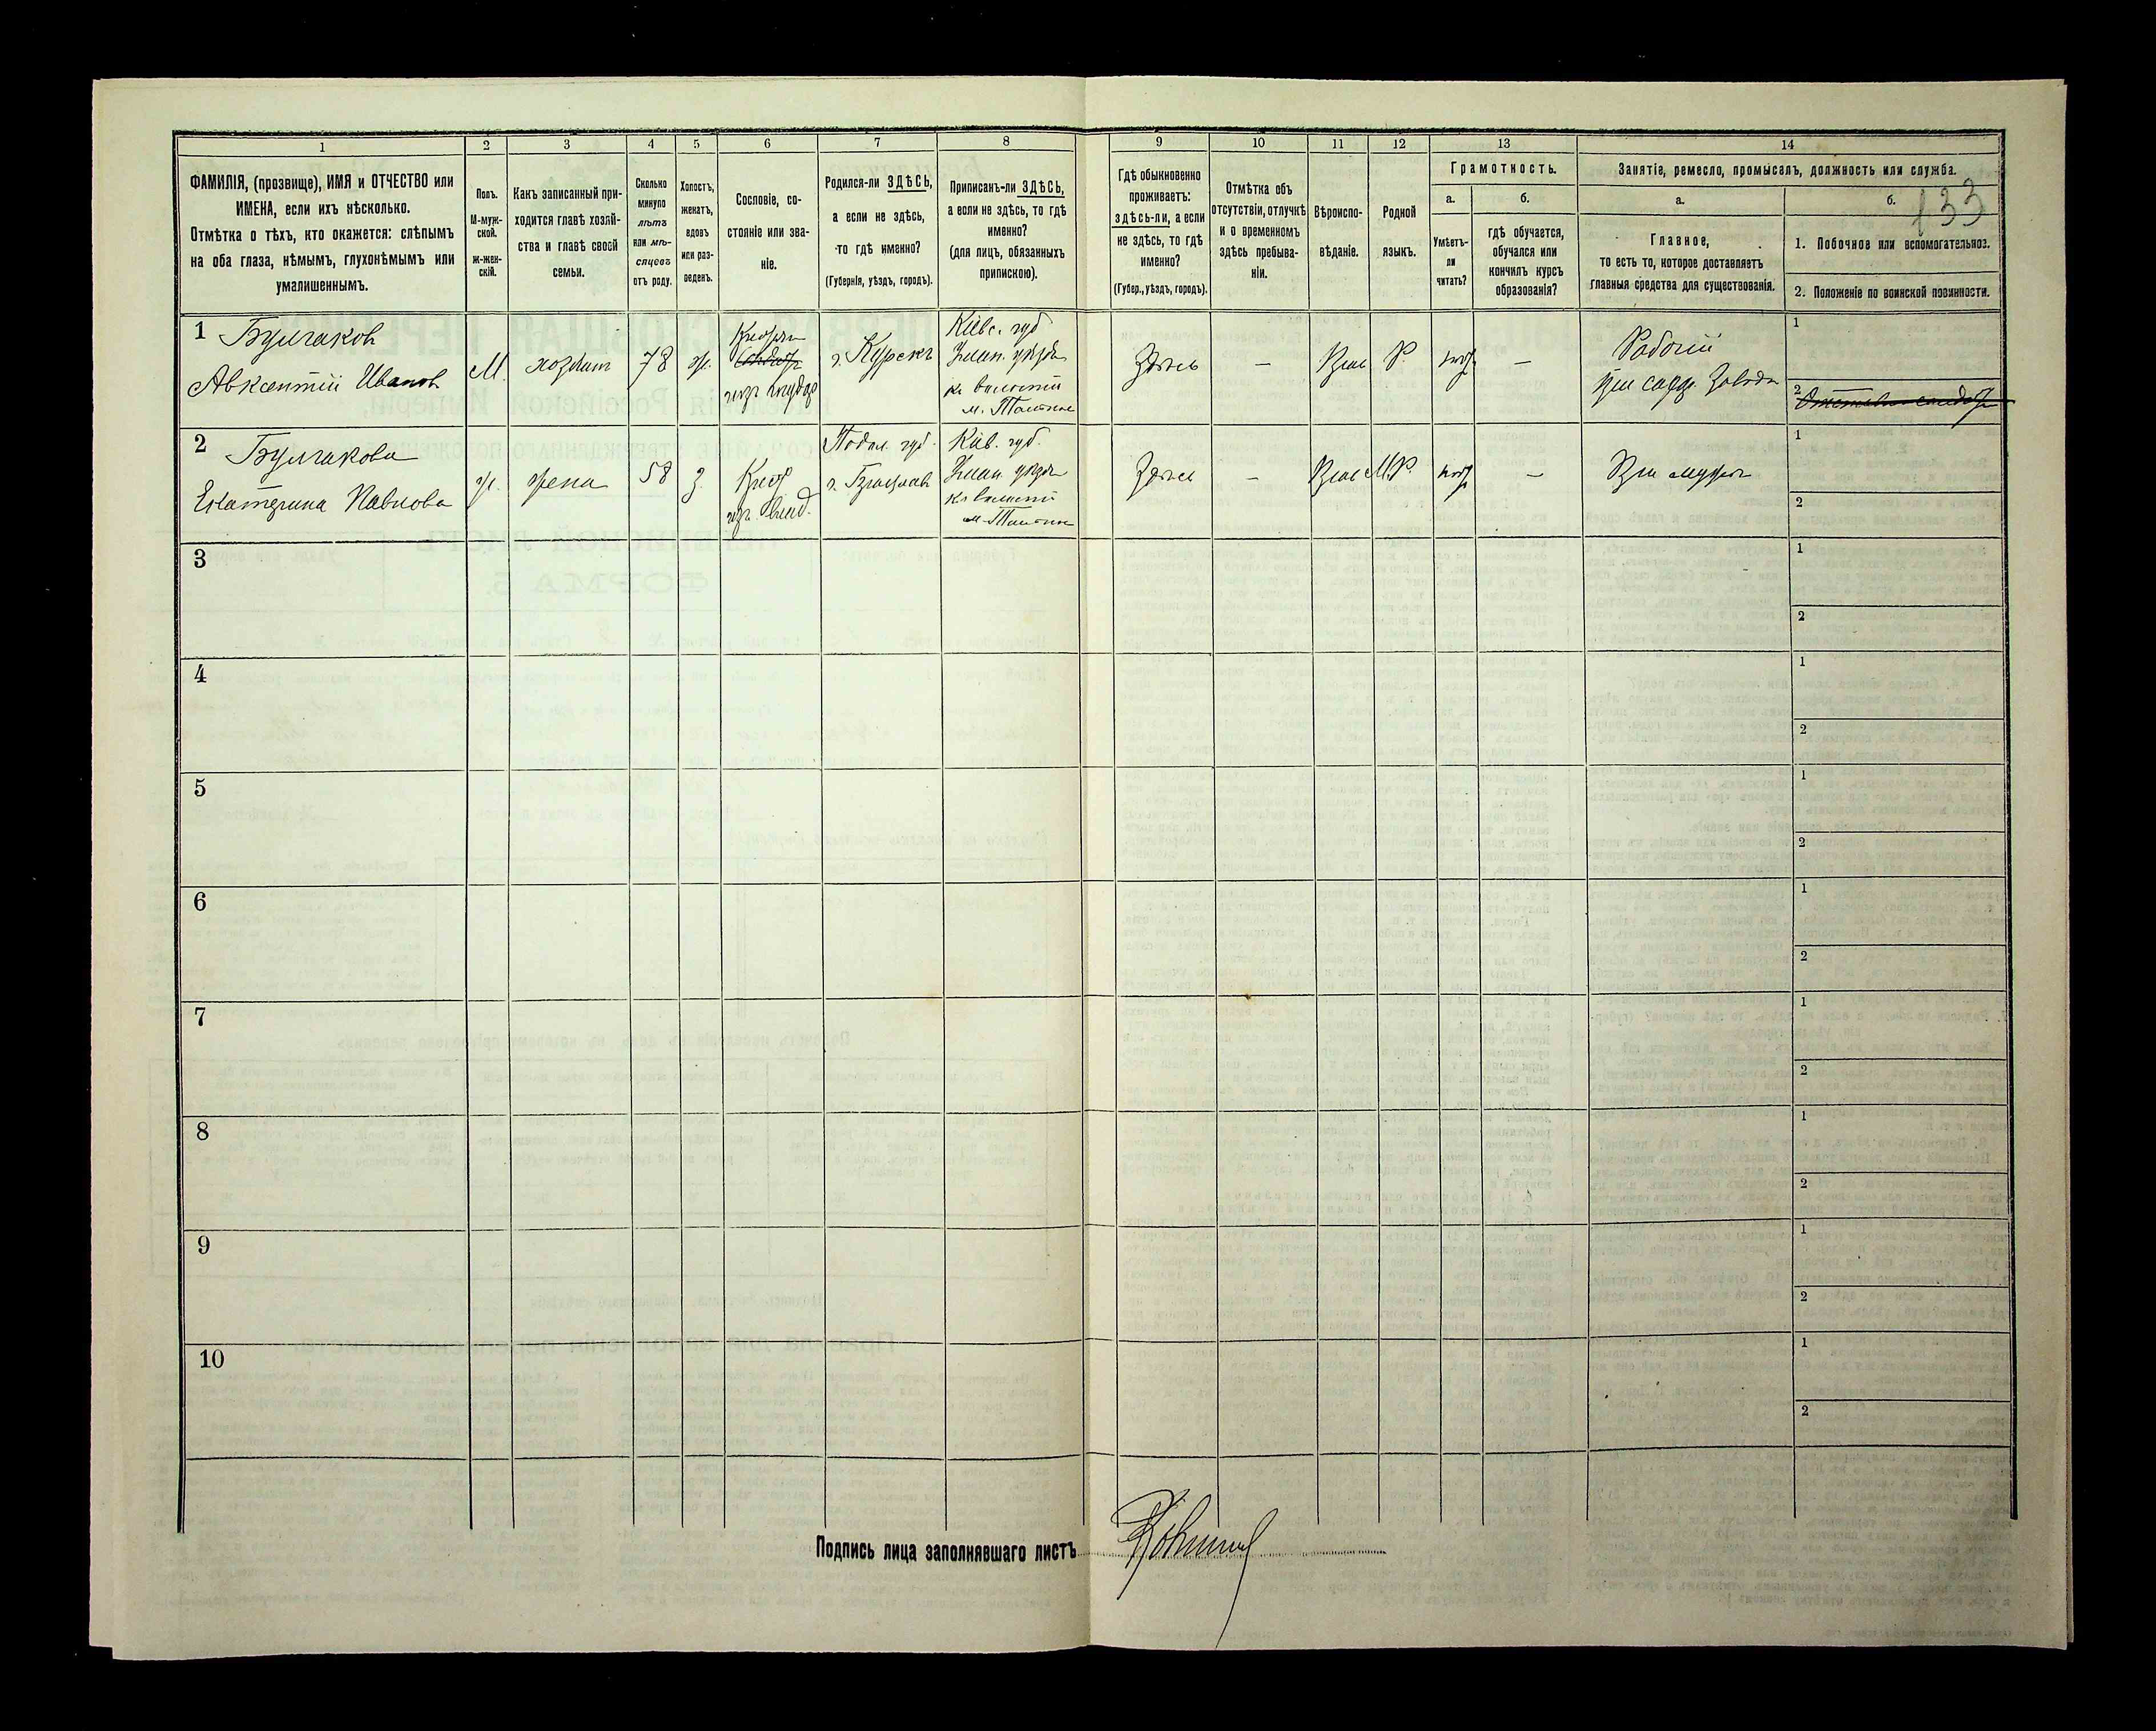 1 2 3 4 5 6 7 8 9 10 11 12 13 14
ФАМИЛІЯ, (прозвище), ИМЯ и ОТЧЕСТВО или
ИМЕНА, если ихъ нѣсколько.
Отмѣтка о тѣхъ, кто окажется: слѣпымъ
на оба глаза, нѣмымъ, глухонѣмымъ или
умалишеннымъ.
Полъ.
М-муж-
ской.
Ж-жен-
скій.
Какъ записанный при-
ходится главѣ хозяй-
ства и главѣ своей
семьи.
Сколько
минуло
лѣтъ
или мѣ-
сяцевъ
отъ роду.
Холостъ,
женатъ,
вдовъ
или раз-
веденъ.
Сословіе, со-
стояніе или зва-
ніе.
Родился-ли ЗДѢСЬ,
а если не здѣсь,
то гдѣ именно?
(Губернія, уѣздъ, городъ).
Приписанъ-ли ЗДѢСЬ,
а если не здѣсь, то гдѣ
именно?
(для лицъ, обязанныхъ
припискою).
Гдѣ обыкновенно
проживаетъ:
здѣсь-ли, а если
не здѣсь, то гдѣ
именно?
(Губер., уѣздъ, городъ).
Отмѣтка объ
отсутствіи, отлучкѣ
и о временномъ
здѣсь пребыва-
ніи.
Вѣроиспо-
вѣданіе.
Родной
языкъ.
Грамотность.
а.
Умѣетъ-
ли
читать?
б.
гдѣ обучается,
обучался или
кончилъ курсъ
образованія?
Занятіе, ремесло, промыселъ, должность или служба.
а.
Главное,
то есть то, которое доставляетъ
главныя средства для существованія.
б.
133
1. Побочное или вспомогательное.
2. Положеніе по воинской повинности.
1
Булгаков
Авксентій Иванов
М.
хозяин
78
ж.
г. Курскъ
Кіевс. губ
Уман. уѣзда
м. Тальное
Здѣсь
—
Р.
—
Рабочій
сах. завода
1
2
2
Булгакова
Екатерина Павлова
ж.
жена
58
з.
Подол. губ.
г. Брацлав
Кіев. губ.
Уман. уѣзда
м. Тальное
Здѣсь
—
М.Р.
—
При мужѣ
1
2
3
1
2
4
1
2
5
1
2
6
1
2
7
1
2
8
1
2
9
1
2
10
1
2
Подпись лица заполнявшаго листъ